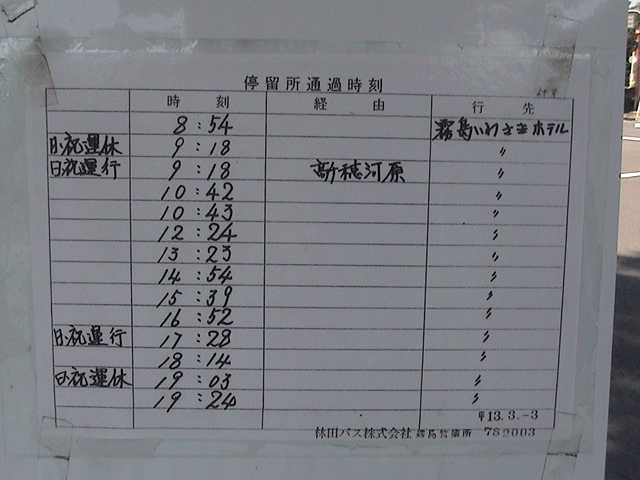 停留所通過時刻
時 刻 経 由 行 先
8:54 霧島いわさきホテル
日・祝運休 9:18 〃
日・祝運行 9:18 高千穂河原 〃
10:42 〃
10:43 〃
12:24 〃
13:23 〃
14:54 〃
15:39 〃
16:52 〃
日・祝運行 17:28 〃
18:14 〃
日・祝運休 19:03 〃
19:24 〃
平13.3.-3
林田バス株式会社 霧島営業所 782003